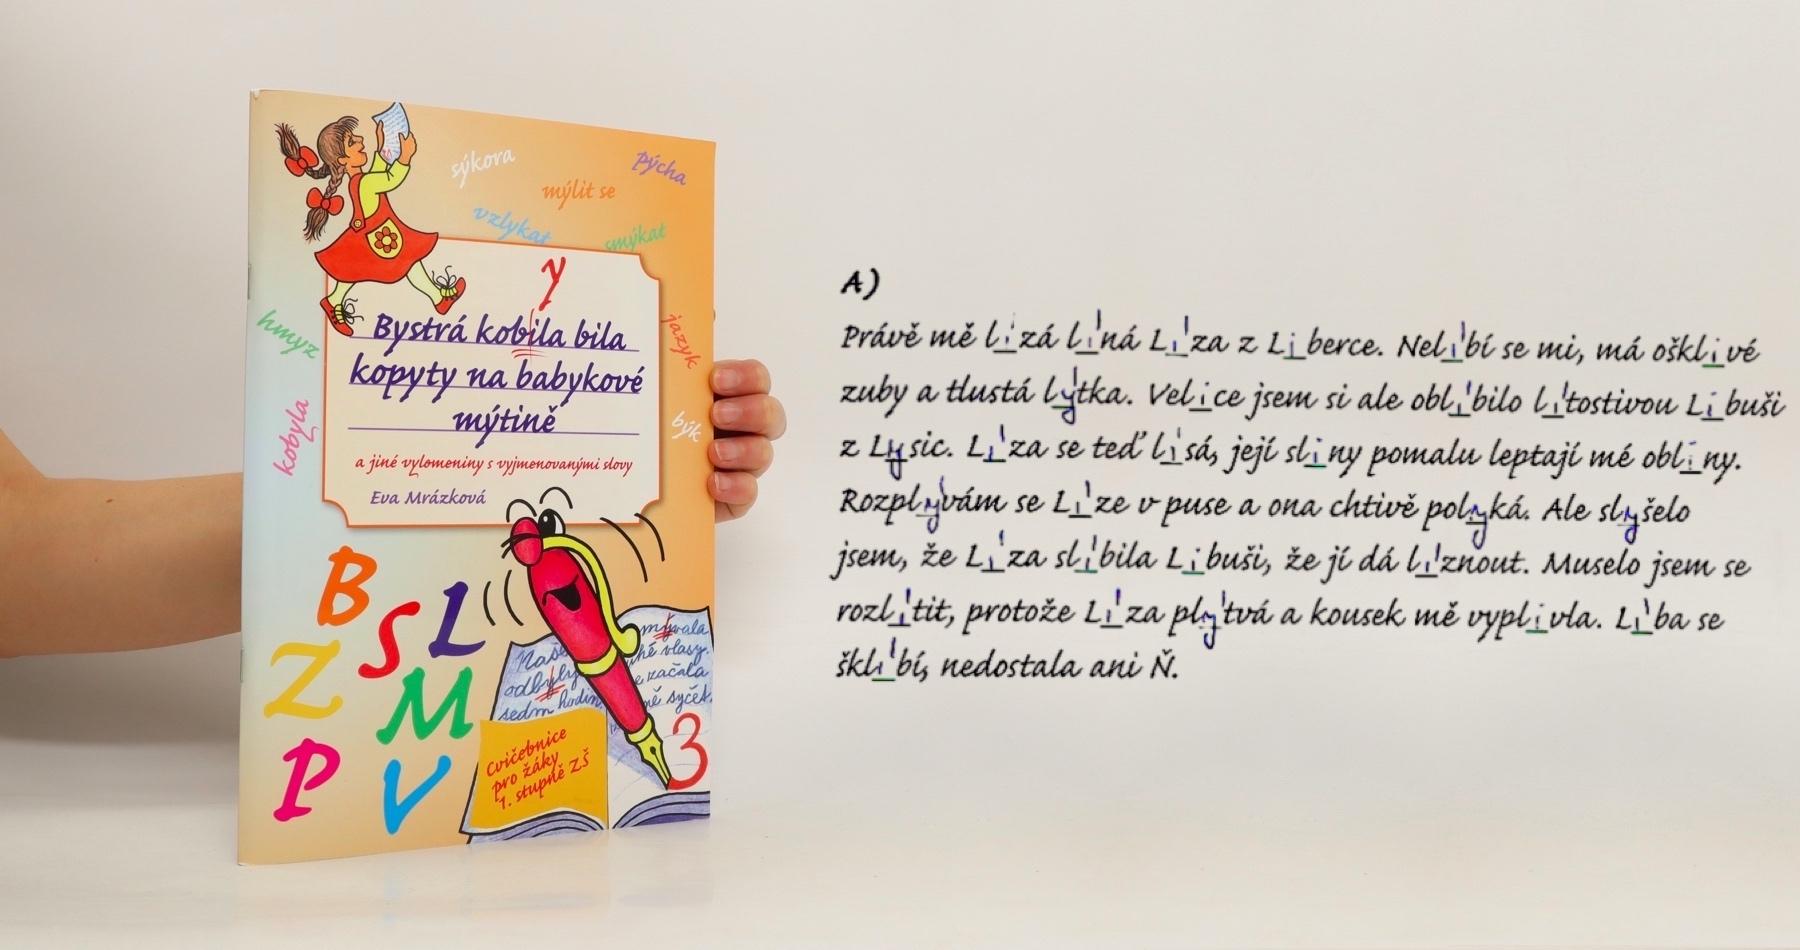 sýkora
pýcha
mýlit se
vzlykat
smýkat
hmyz
jazyk
kobyla
býk
y
Bystrá kobila bila
kopyty na babykové
mýtině
a jiné vylomeniny s vyjmenovanými slovy
Eva Mrázková
B
S
L
Z
M
P
V
mývala
Naše
uhé vlasy.
odbyly
e začala
sedm hodin
mě syčet.
3
Cvičebnice
pro žáky
1. stupně ZŠ
A)
Právě mě lízá líná Líza z Liberce. Nelíbí se mi, má ošklivé
zuby a tlustá lýtka. Velice jsem si ale oblíbilo lítostivou Libuši
z Lysic. Líza se teď lísá, její sliny pomalu leptají mé obliny.
Rozplývám se Líze v puse a ona chtivě polyká. Ale slyšelo
jsem, že Líza slíbila Libuši, že jí dá líznout. Muselo jsem se
rozlítit, protože Líza plýtvá a kousek mě vyplivla. Líba se
šklíbí, nedostala ani Ň.